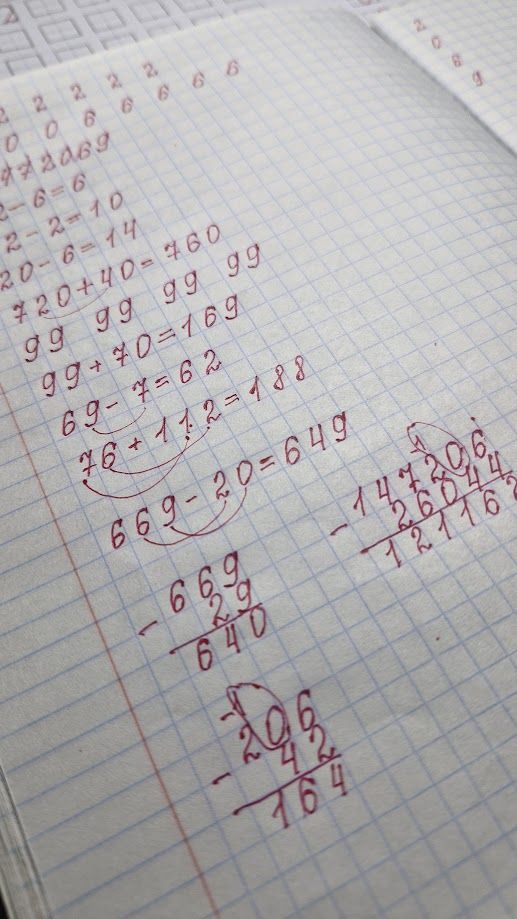 2 2 2 2 2
0 0 6 6 6 6 6
772069
2-6=6
2-2=10
20-6=14
720+40=760
99 99 99 99
99+70=169
69-7=62
76+112=188
669-20=649
-669
29
640
-206
42
164
-147206
26044
121162
2
0
6
9